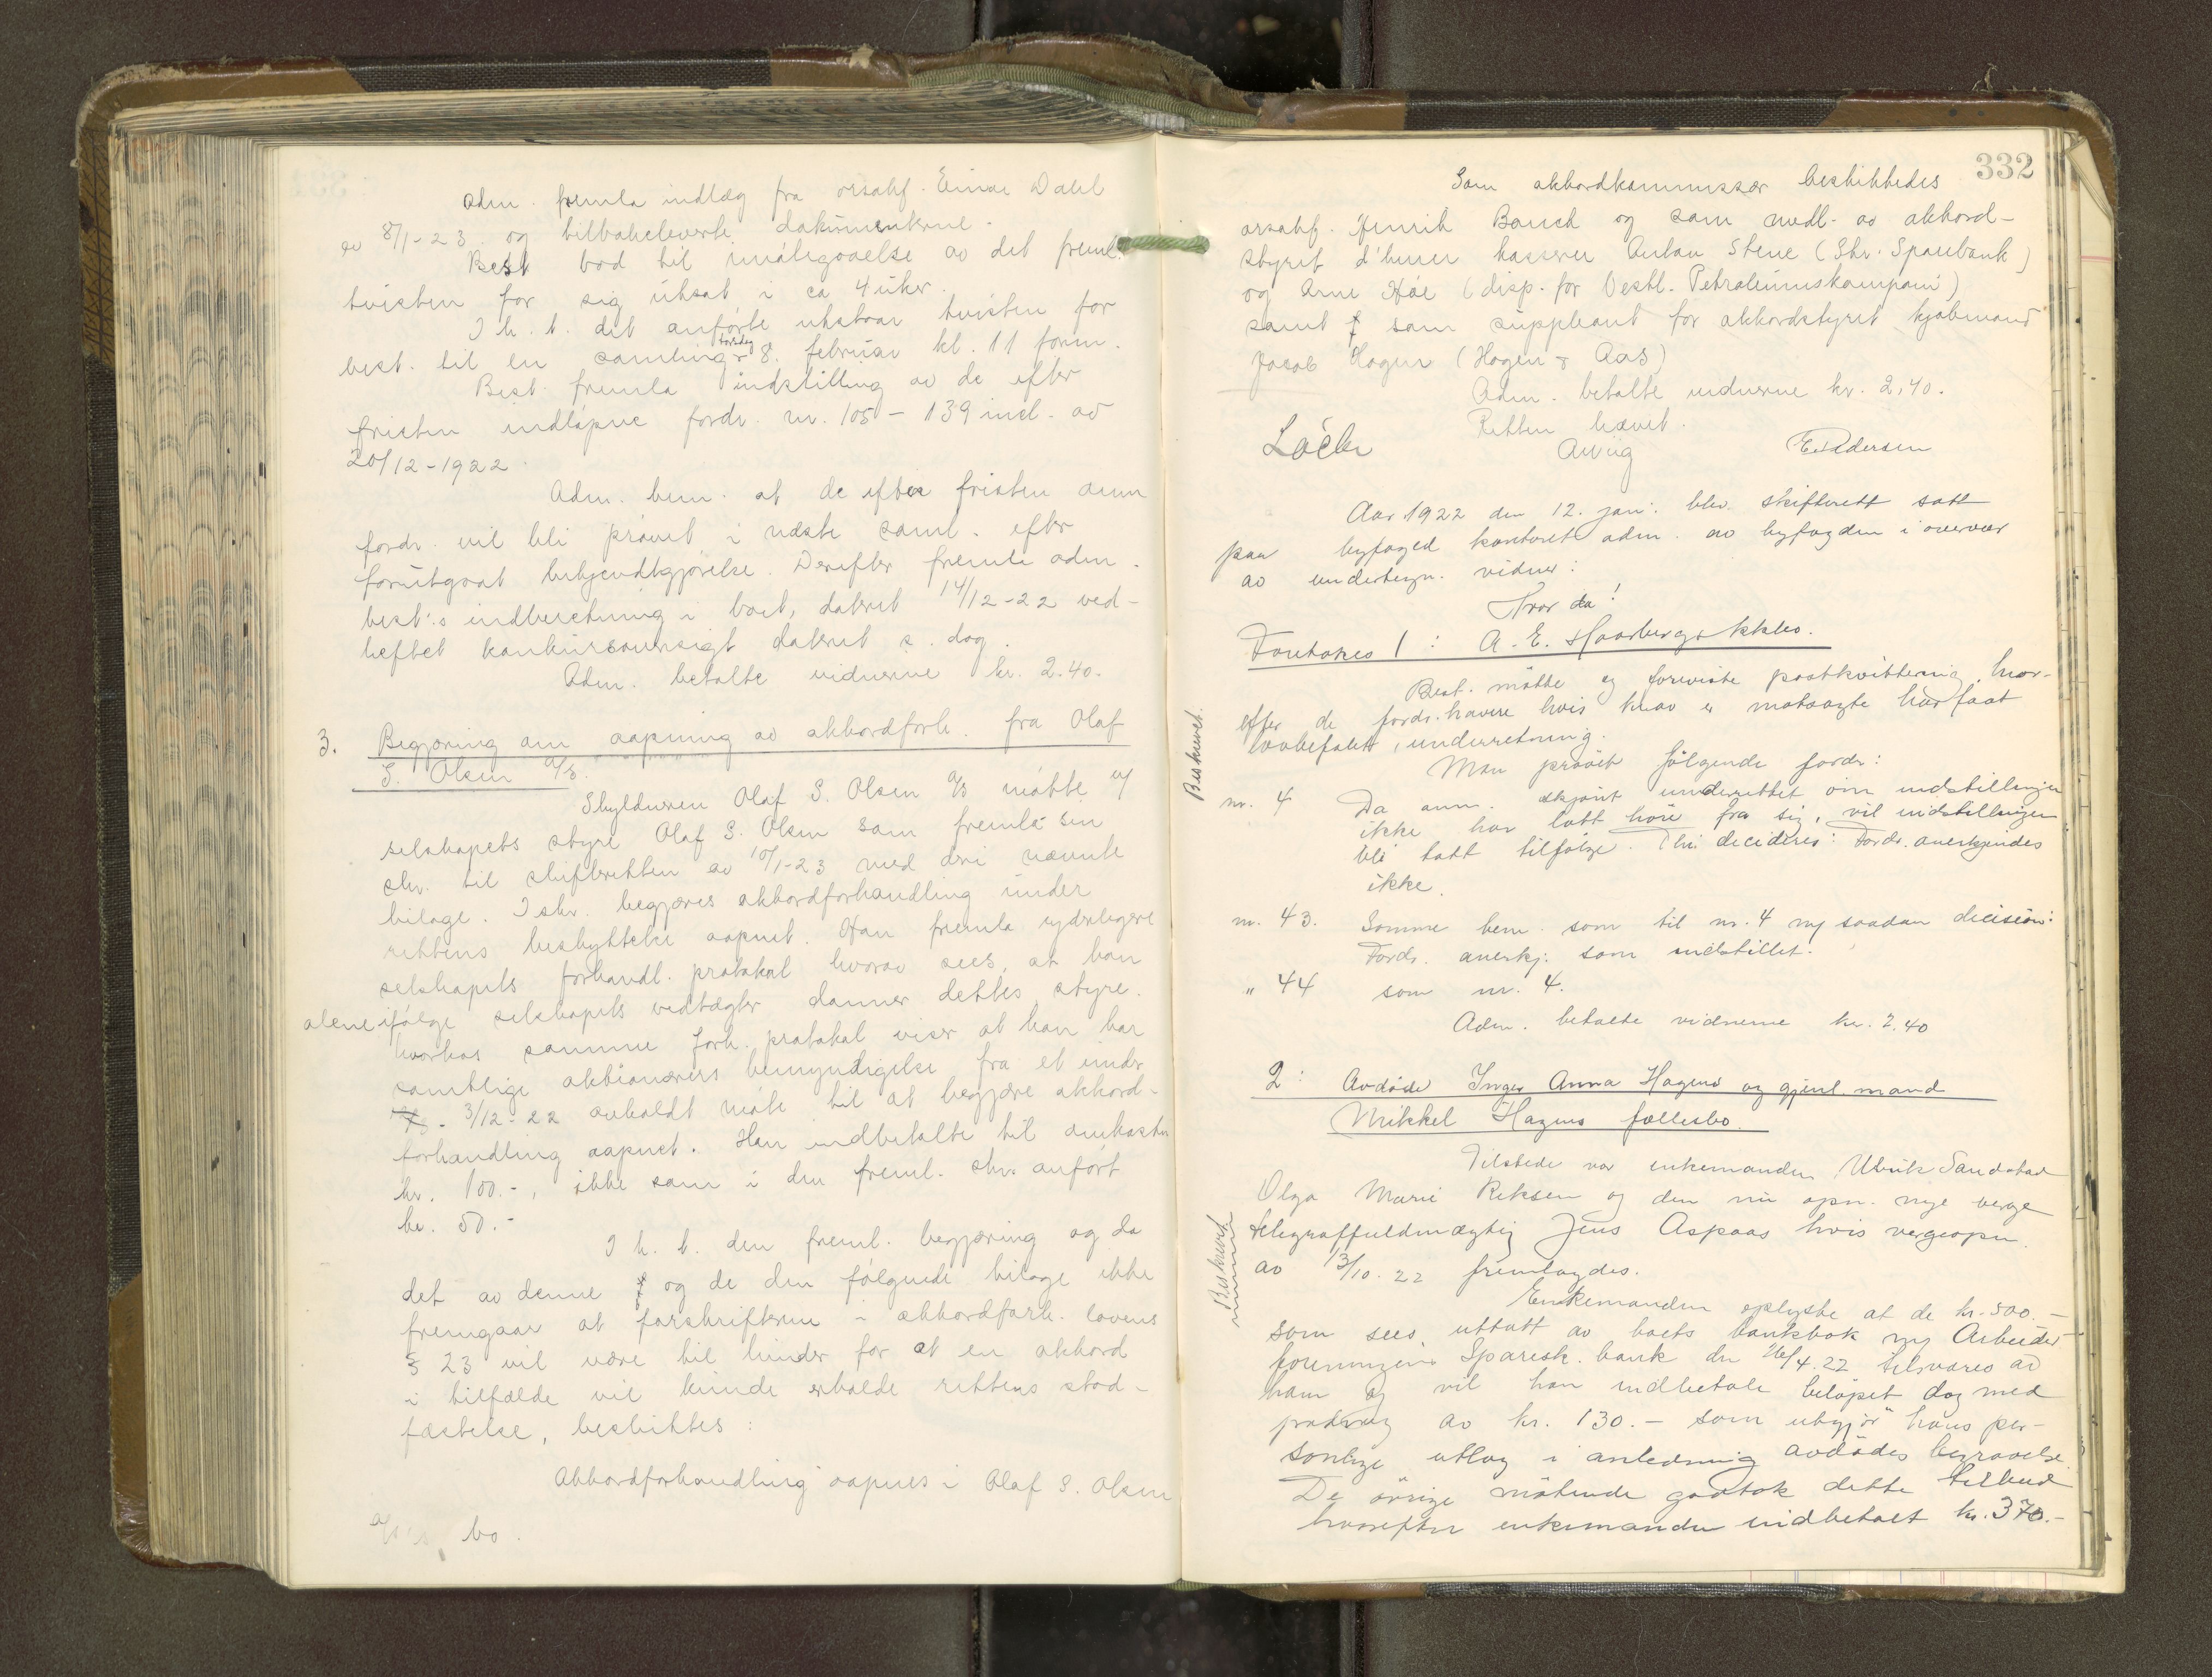 Adm. fremla indlæg fra orsakf. Einar Dahl
av 8/1-23. og tilbakeleverte dokumenterne.
Best. bad til imøtegaaelse av det freml.
tvisten for sig utsat i ca 4 uker.
I h. t. det anførte utstaar tvisten for
best. til en samling torsdag 8. februar kl. 11 form.
Best. fremla indstilling av de efter
fristen indløpne fordr. nr. 105 - 139 incl. av
20/12-1922.
Adm. bem. at de efter fristen anm
fordr. vil bli prøvet i næste saml. efter
forutgaat bekjendtgjørelse. Derefter fremla adm.
best.s indberetning i boet, datert 14/12-22 ved-
heftet konkursoversigt datert s. dag.
Adm. betalte vidnerne kr. 2.40.
3. Begjæring om aapning av akkordforh. fra Olaf
S. Olsen a/s.
Skyldneren Olaf S. Olsen a/s møtte v/
selskapets styre Olaf S. Olsen som fremla sin
skr. til skifteretten av 10/1-23 med deri nævnte
bilage. I skr. begjæres akkordforhandling under
rettens beskyttelse aapnet. Han fremla yderligere
selskapets forhandl. protokol hvorav sees, at han
alene ifølge selskapets vedtægter danner dettes styre.
hvorhos samme forh. protokol viser at han har
samtlige aktionærers bemyndigelse fra et under
3/12-22 avholdt møte til at begjære akkord-
forhandling aapnet. Han indbetalte til omkostn
kr. 100.-, ikke som i den freml. skr. anført
kr. 50.-
I h. t. den freml. begjæring og da
det av denne og de den følgende bilage ikke
fremgaar at forskrifterne i akkordforh. lovens
§ 23 vil være til hinder for at en akkord
i tilfælde vil kunde erholde rettens stad-
fæstelse, besluttes:
Akkordforhandling aapnes i Olaf S. Olsen
a/s's bo.
332
Som akkordkommissær beskikkedes
orsakf. Henrik Bauck og som medl. av akkord-
styret d'herrer kasserer Anton Stene (Skr. Sparebank)
og Arne Håe (disp. for Vestl. Petroleumskompani)
samt som suppleant for akkordstyret kjøbmand
Jacob Hagen (Hagen & Aas)
Adm. betalte vidnerne kr. 2,40.
Retten hævet.
Løchr Awig E Pedersen
Aar 1922 den 12. jan. blev skifterett satt
paa byfoged kontoret adm. av byfogden i overvær
av undertegn. vidner:
Hvor da!
Foretokes 1: A. E. Haarbergs kkbo.
Beskrevet.
Best. møtte og foreviste postkvittering, hvor-
efter de fordr. havere hvis krav er motsagte har faat
lovbefalett underretning.
Man prøvet følgende fordr:
nr. 4 Da anm. skjønt underrettet om indstillingen
ikke har latt høre fra sig, vil indstillingen
bli tatt tilfølge. Thi decideres: Fordr. anerkjendes
ikke.
nr. 43. Samme bem. som til nr. 4 og saadan decision:
Fordr. anerkj. som indstillet.
" 44 som nr. 4.
Adm. betalte vidnerne kr. 2.40
2: Avdøde Inger Anna Hagens og gjenl. mand
Mikkel Hagens fællesbo.
Beskrevet
Tilstede var enkemanden, Ulrik Sandstad
Olga Marie Riksen og den nu opn. nye verge
telegraffuldmægtig Jens Aspaas hvis vergeopn.
av 13/10.22 fremlagdes.
Enkemanden oplyste at de kr. 500.-
som sees uttatt av boets bankbok og Arbeider-
foreningens Sparesk. bank den 26/4.22 tilsvares av
ham og vil han indbetale beløpet dog med
fradrag av kr. 130.- som utgjør hans per-
sonlige utlæg i anledning avdødes begravelse.
De øvrige møtende godtok dette tilbud
hvorefter enkemanden indbetalt kr. 370.-